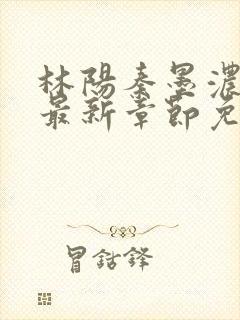 林陽秦墨濃
最新章節免
冒鈷鋒